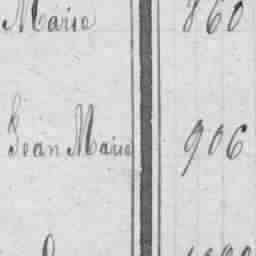 Marie 860
Jean Marie 906